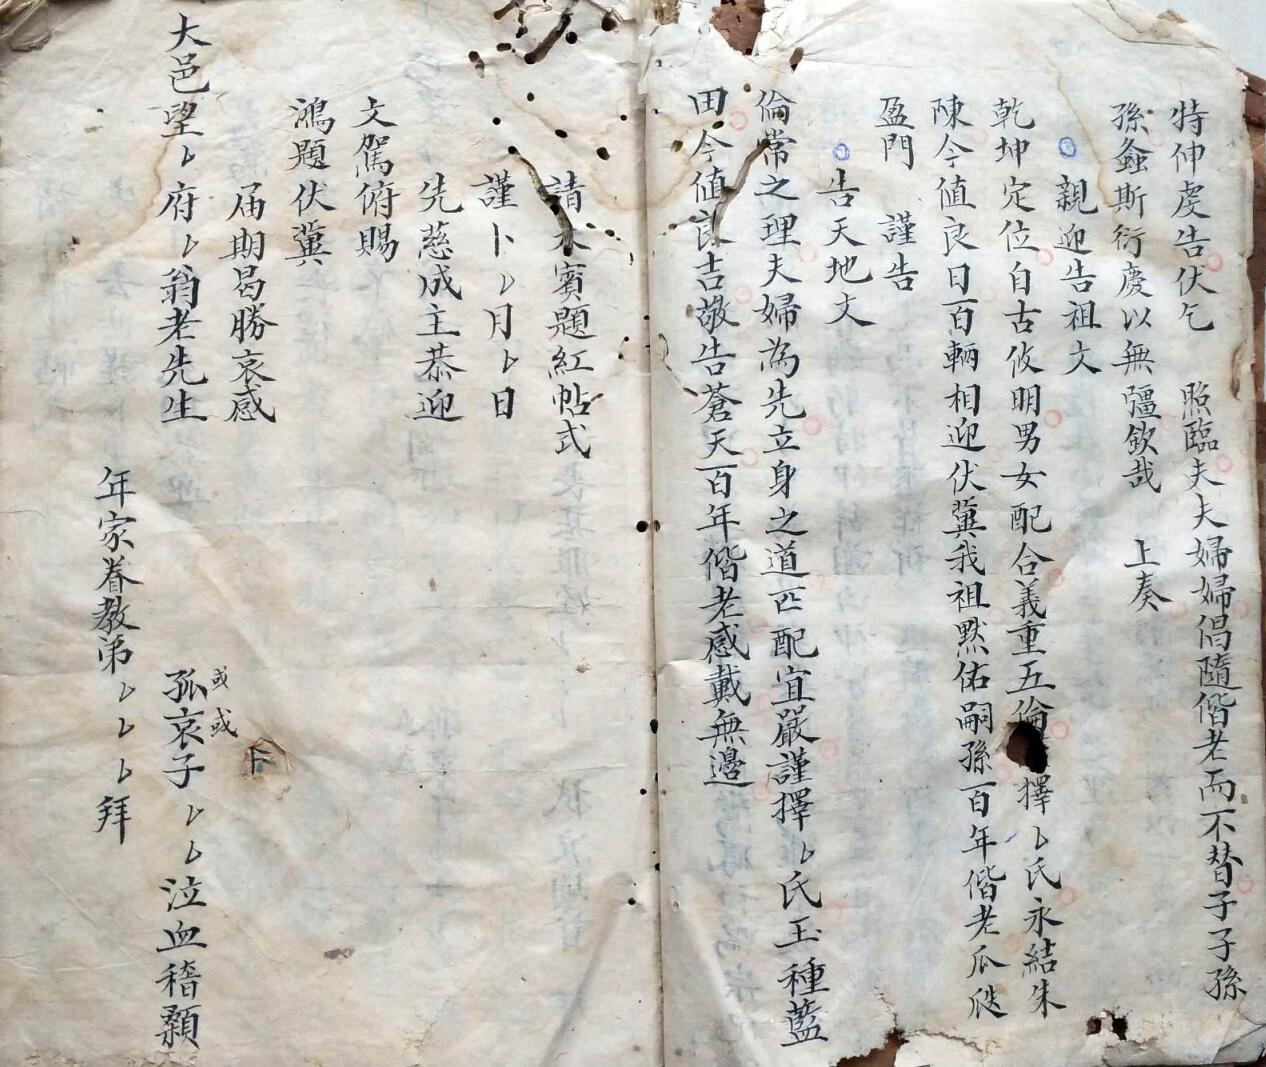 特伸虔告伏乞　照臨夫夫婦婦倡隨偕老而不替子子孫
孫螽斯衍慶以無疆欽哉　上奏
親迎告祖文
乾坤定位自古攸明男女配合義重五倫擇卜氏永結朱
陳今值良日百輛相迎伏冀我祖默佑嗣孫百年偕老瓜瓞
盈門　謹告
告天地文
倫常之理夫婦為先立身之道匹配宜嚴謹擇卜氏玉種藍
田今值良吉敬告蒼天百年偕老感戴無邊
請大賓題紅帖式
謹卜卜月卜日
先慈成主恭迎
文駕俯賜
鴻題伏冀
屆期曷勝哀感
大邑望卜府卜翁老先生
孤哀子卜卜泣血稽顙
或或
年家眷教弟卜卜卜拜